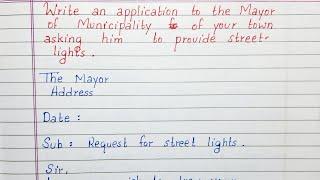 Write an application to the Mayor
of Municipality of your town
asking him to provide street-
lights.
The Mayor
Address
Date :
Sub : Request for street lights.
Sir,